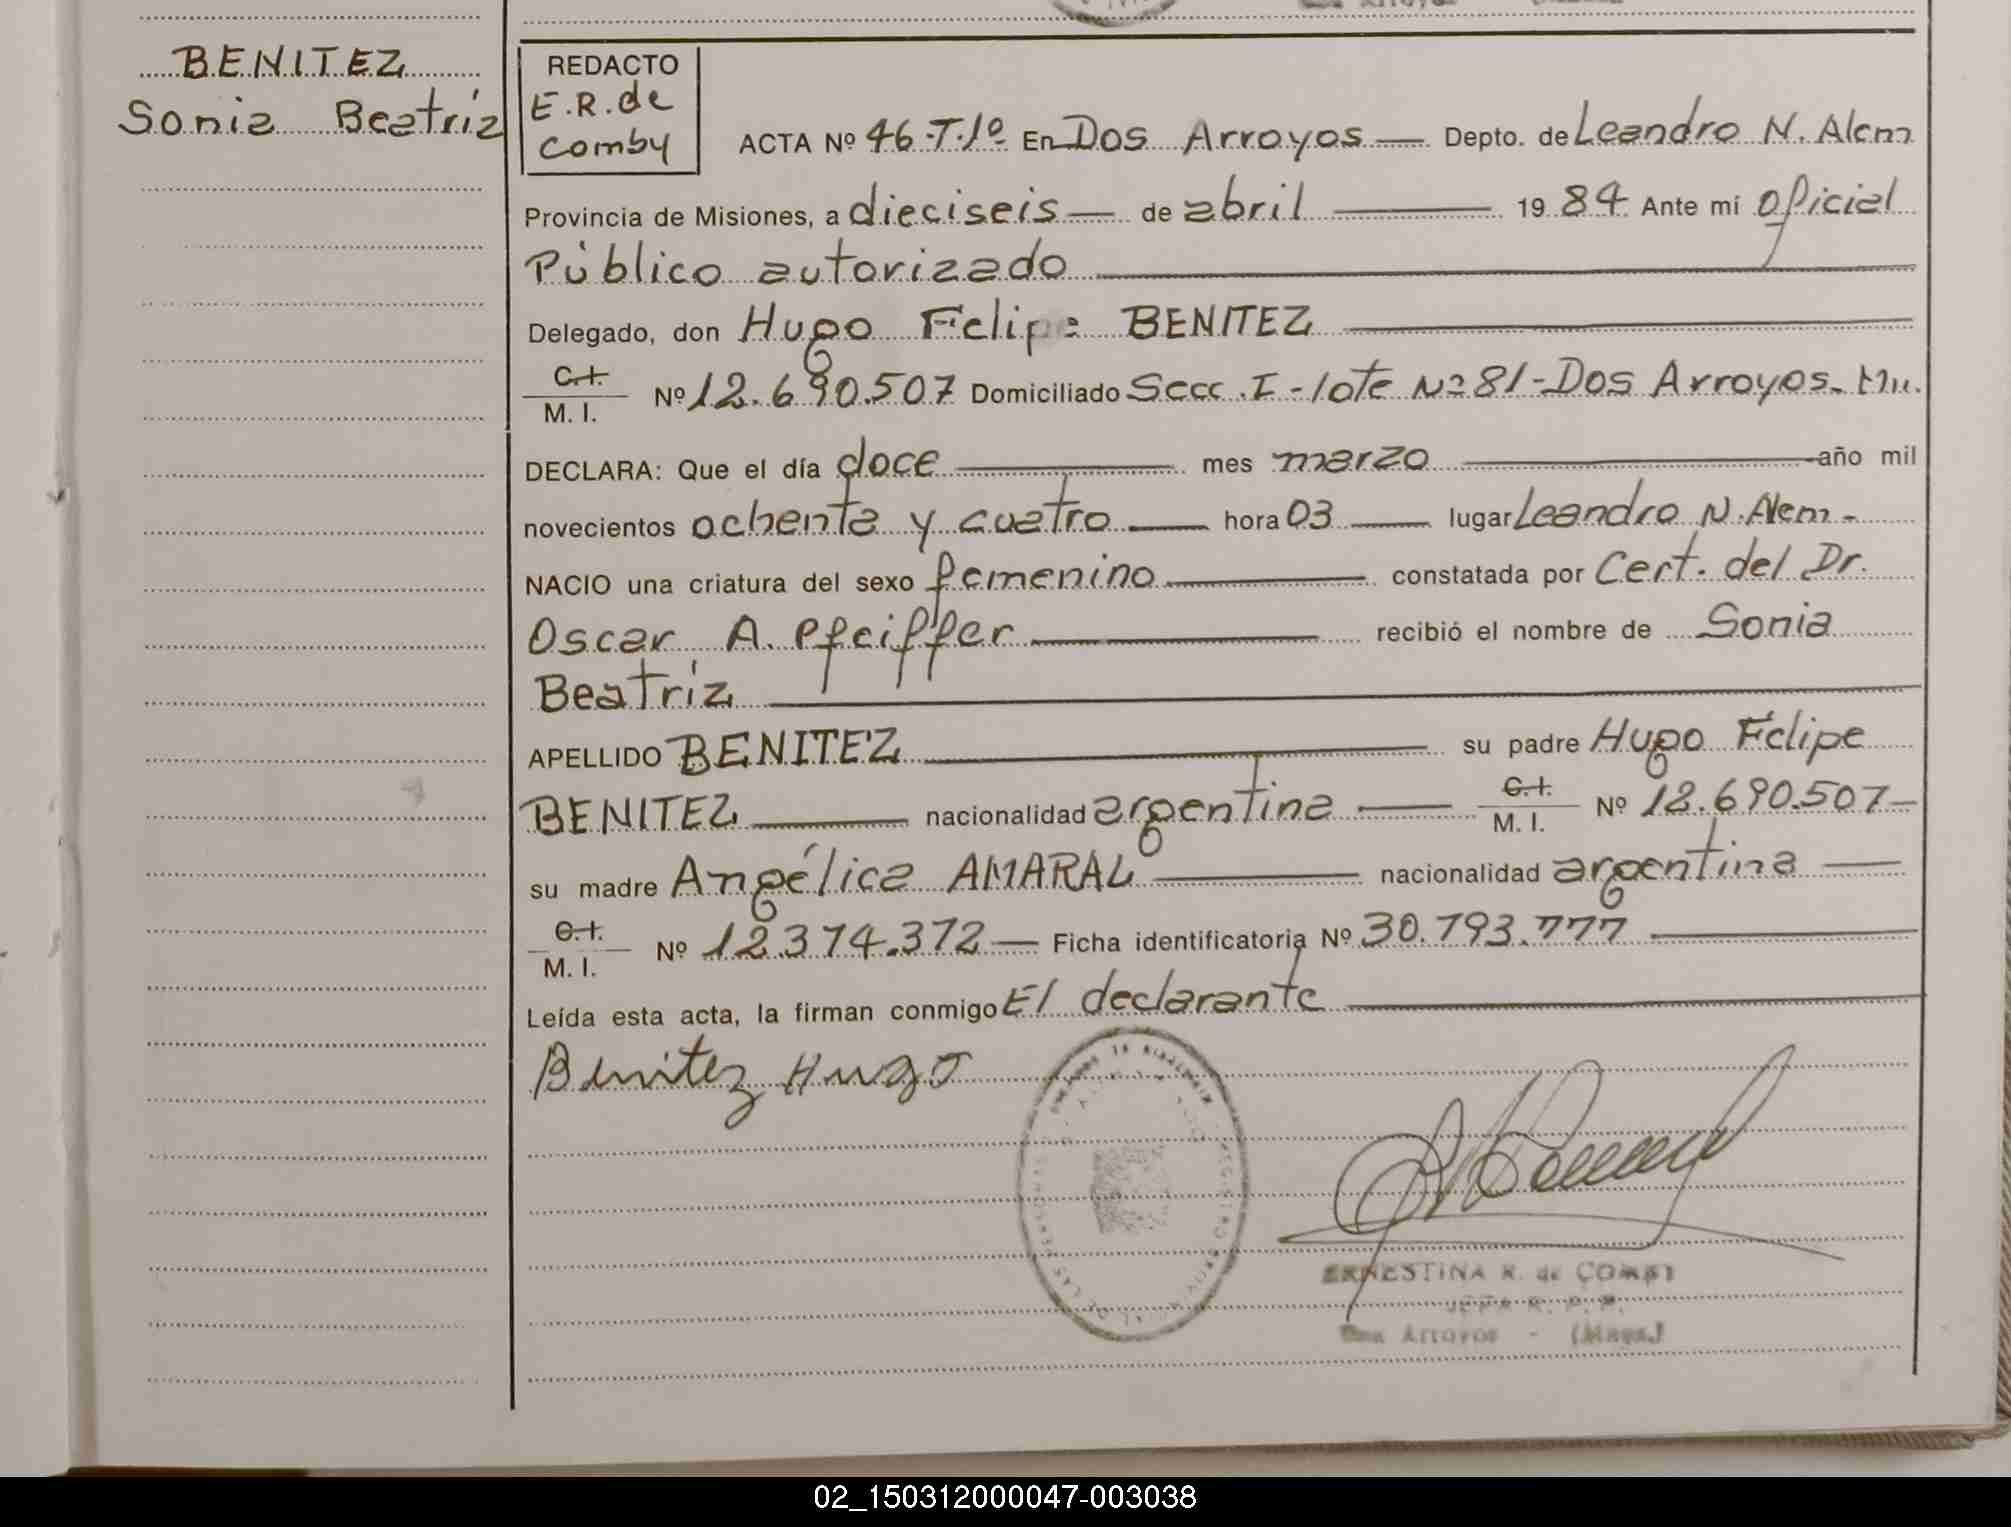 BENITEZ
Sonia Beatríz
REDACTO
E.R.de
Comby
ACTA Nº 46-T.1º En Dos Arroyos — Depto. de Leandro N. Alem
Provincia de Misiones, a dieciseis — de abril — 19 84 Ante mí Oficial
Público autorizado
Delegado, don Hugo Felipe BENITEZ
C.I.
M. I. Nº 12.690.507 Domiciliado Secc. I - lote Nº 81 - Dos Arroyos.
DECLARA: Que el día doce — mes marzo — año mil
novecientos ochenta y cuatro — hora 03 — lugar Leandro N. Alem -
NACIO una criatura del sexo femenino — constatada por Cert. del Dr.
Oscar A. Pfeiffer — recibió el nombre de Sonia
Beatríz
APELLIDO BENITEZ — su padre Hugo Felipe
BENITEZ — nacionalidad argentina — C.I. M. I. Nº 12.690.507 —
su madre Angélica AMARAL — nacionalidad argentina —
C.I.
M. I. Nº 12.374.372 — Ficha identificatoria Nº 30.793.777 —
Leída esta acta, la firman conmigo El declarante
Benitez Hugo
ERNESTINA R. de COMBY
JEFA R. P. P.
Dos Arroyos - (Mnes.)
02_150312000047-003038